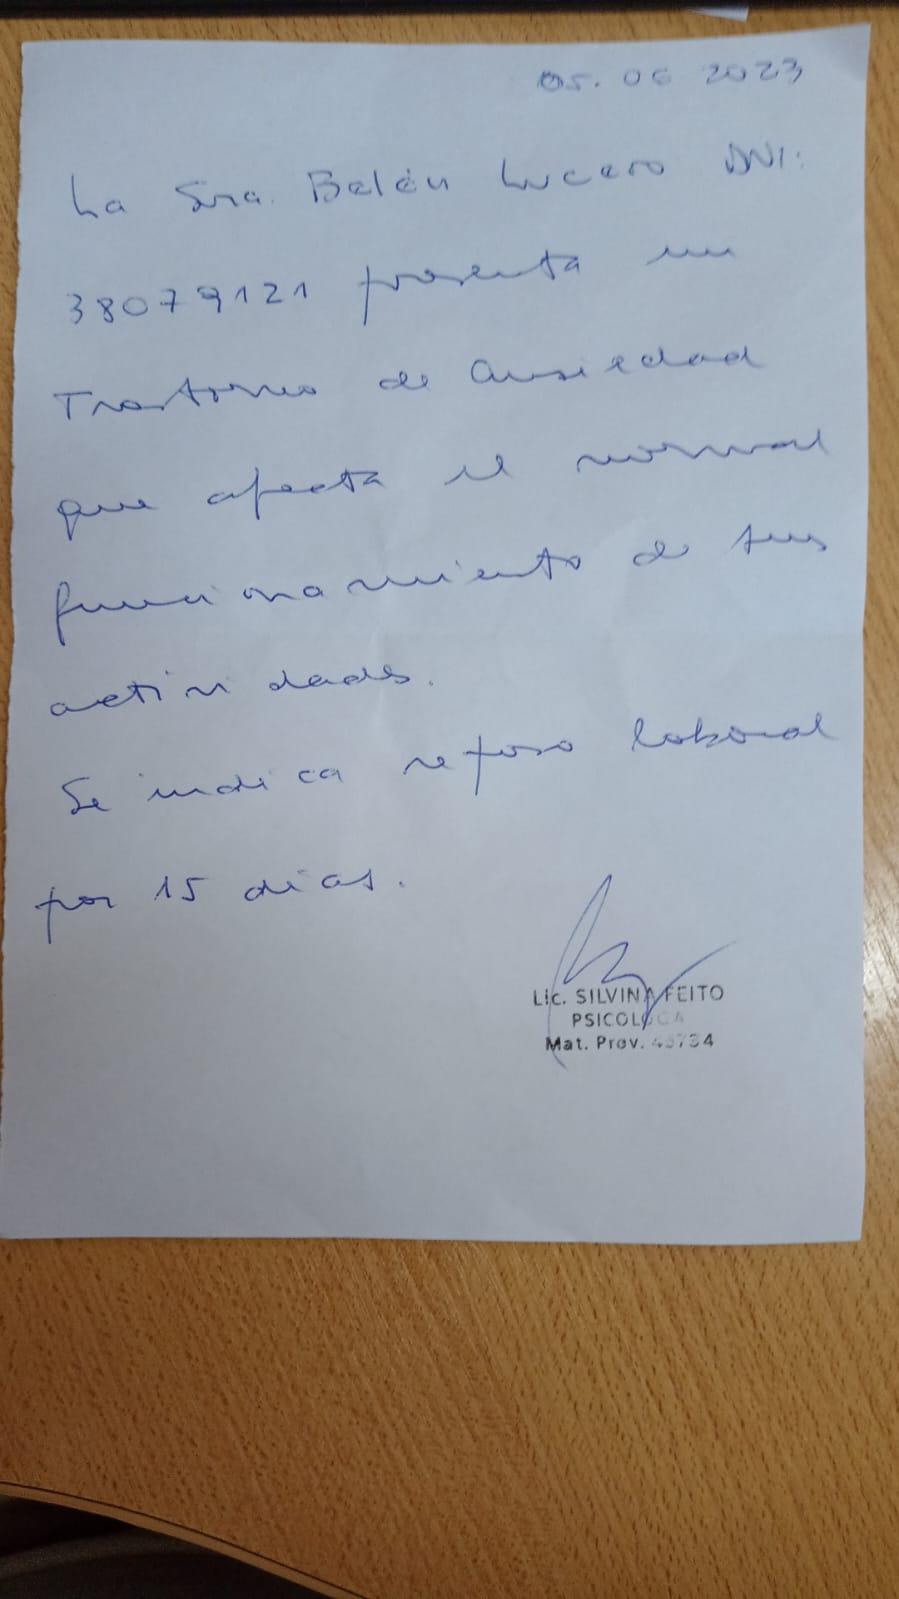 05. 06 2023
La Sra. Belén Lucero DNI:
38079121 presenta un
Trastorno de Ansiedad
que afecta el normal
funcionamiento de sus
actividades.
Se indica reposo laboral
por 15 días.
Lic. SILVINA FEITO
PSICOLOGA
Mat. Prov.